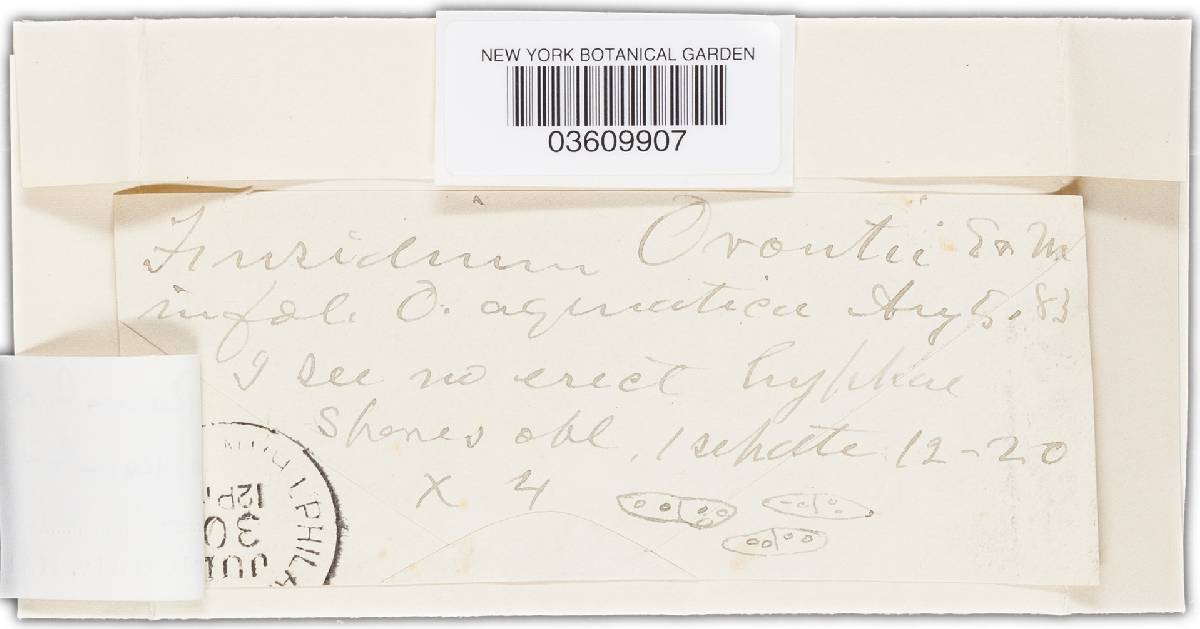 NEW YORK BOTANICAL GARDEN
03609907
Fusidium Orontii E & M
in fol. O. aquatica Aug 5. 83
I see no erect hyphae
Spores obl, 1 septate 12-20
x 4
PHILA
12 P
30
JUL